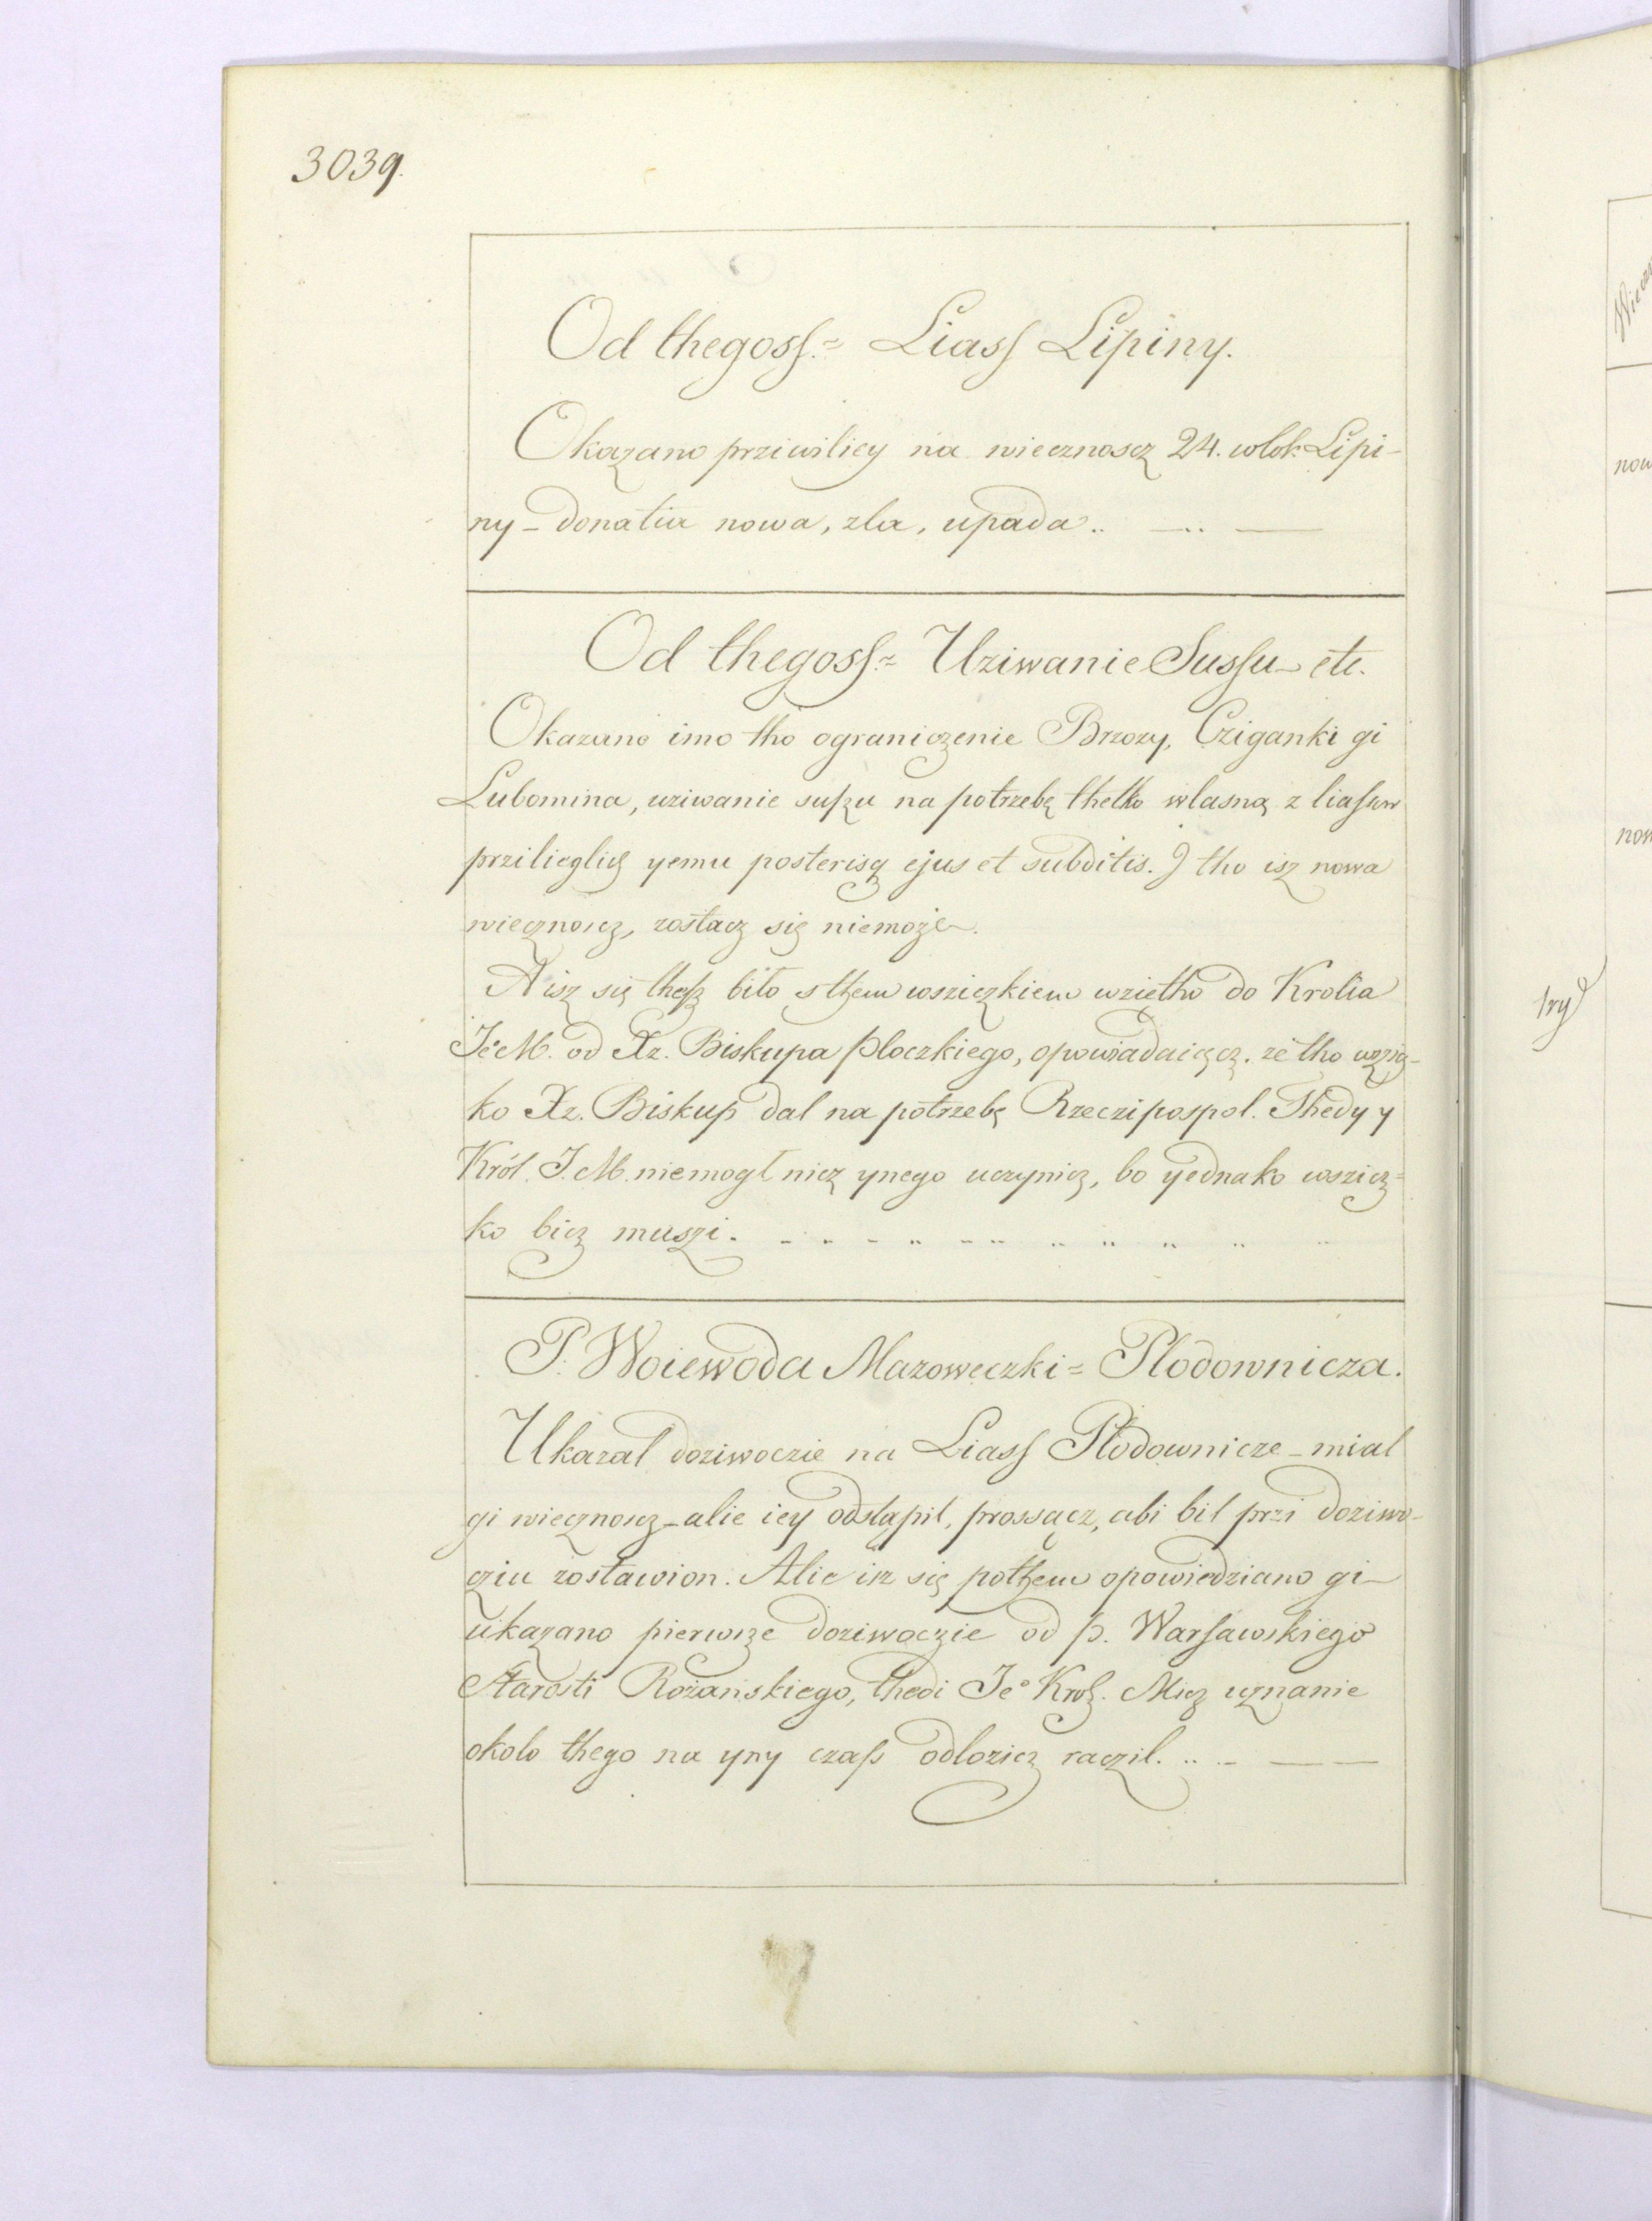 3039.
Od thegoss.= Liass Lipiny.
Okazano prziwiliey na wiecznoscz 24. wlok Lipi-
ny - donatia nowa, zla, upada..
Od thegoss.= Uziwanie Sussu etc.
Okazano imo tho ograniczenie Brzozy, Cziganki gi
Lubomina, uziwanie suszu na potrzebę thelko wlasną z liassuw
przilieglich yemu posterisq ejus et subditis. I tho isz nowa
wiecznoscz, zostacz się niemoże.
A isz się thesz biło s them wsziczkiem wzietho do Krolia
Je°M. od Xz. Biskupa Ploczkiego, opowiadaiącz. że tho wszis-
ko Xz. Biskup dal na potrzebę Rzeczipospol. Thedy y
Król. J. M. niemogł nicz ynego uczynicz, bo yednako wszicz=
ko bicz muszi.
P. Woiewoda Mazoweczki = Plodownicza.
Ukazal doziwoczie na Liass Plodownicze - mial
gi wiecznoscz - alie iey odstąpil, prossącz, abi bil przi doziwo-
cziu zostawion. Alie iz się pothem opowiedziano gi
ukazano pierwsze doziwoczie od p. Warsawskiego
Starosti Rożańskiego, thedi Je° Krol. Micz uznanie
okolo thego na yny czass odlozicz raczil.
now
now
try